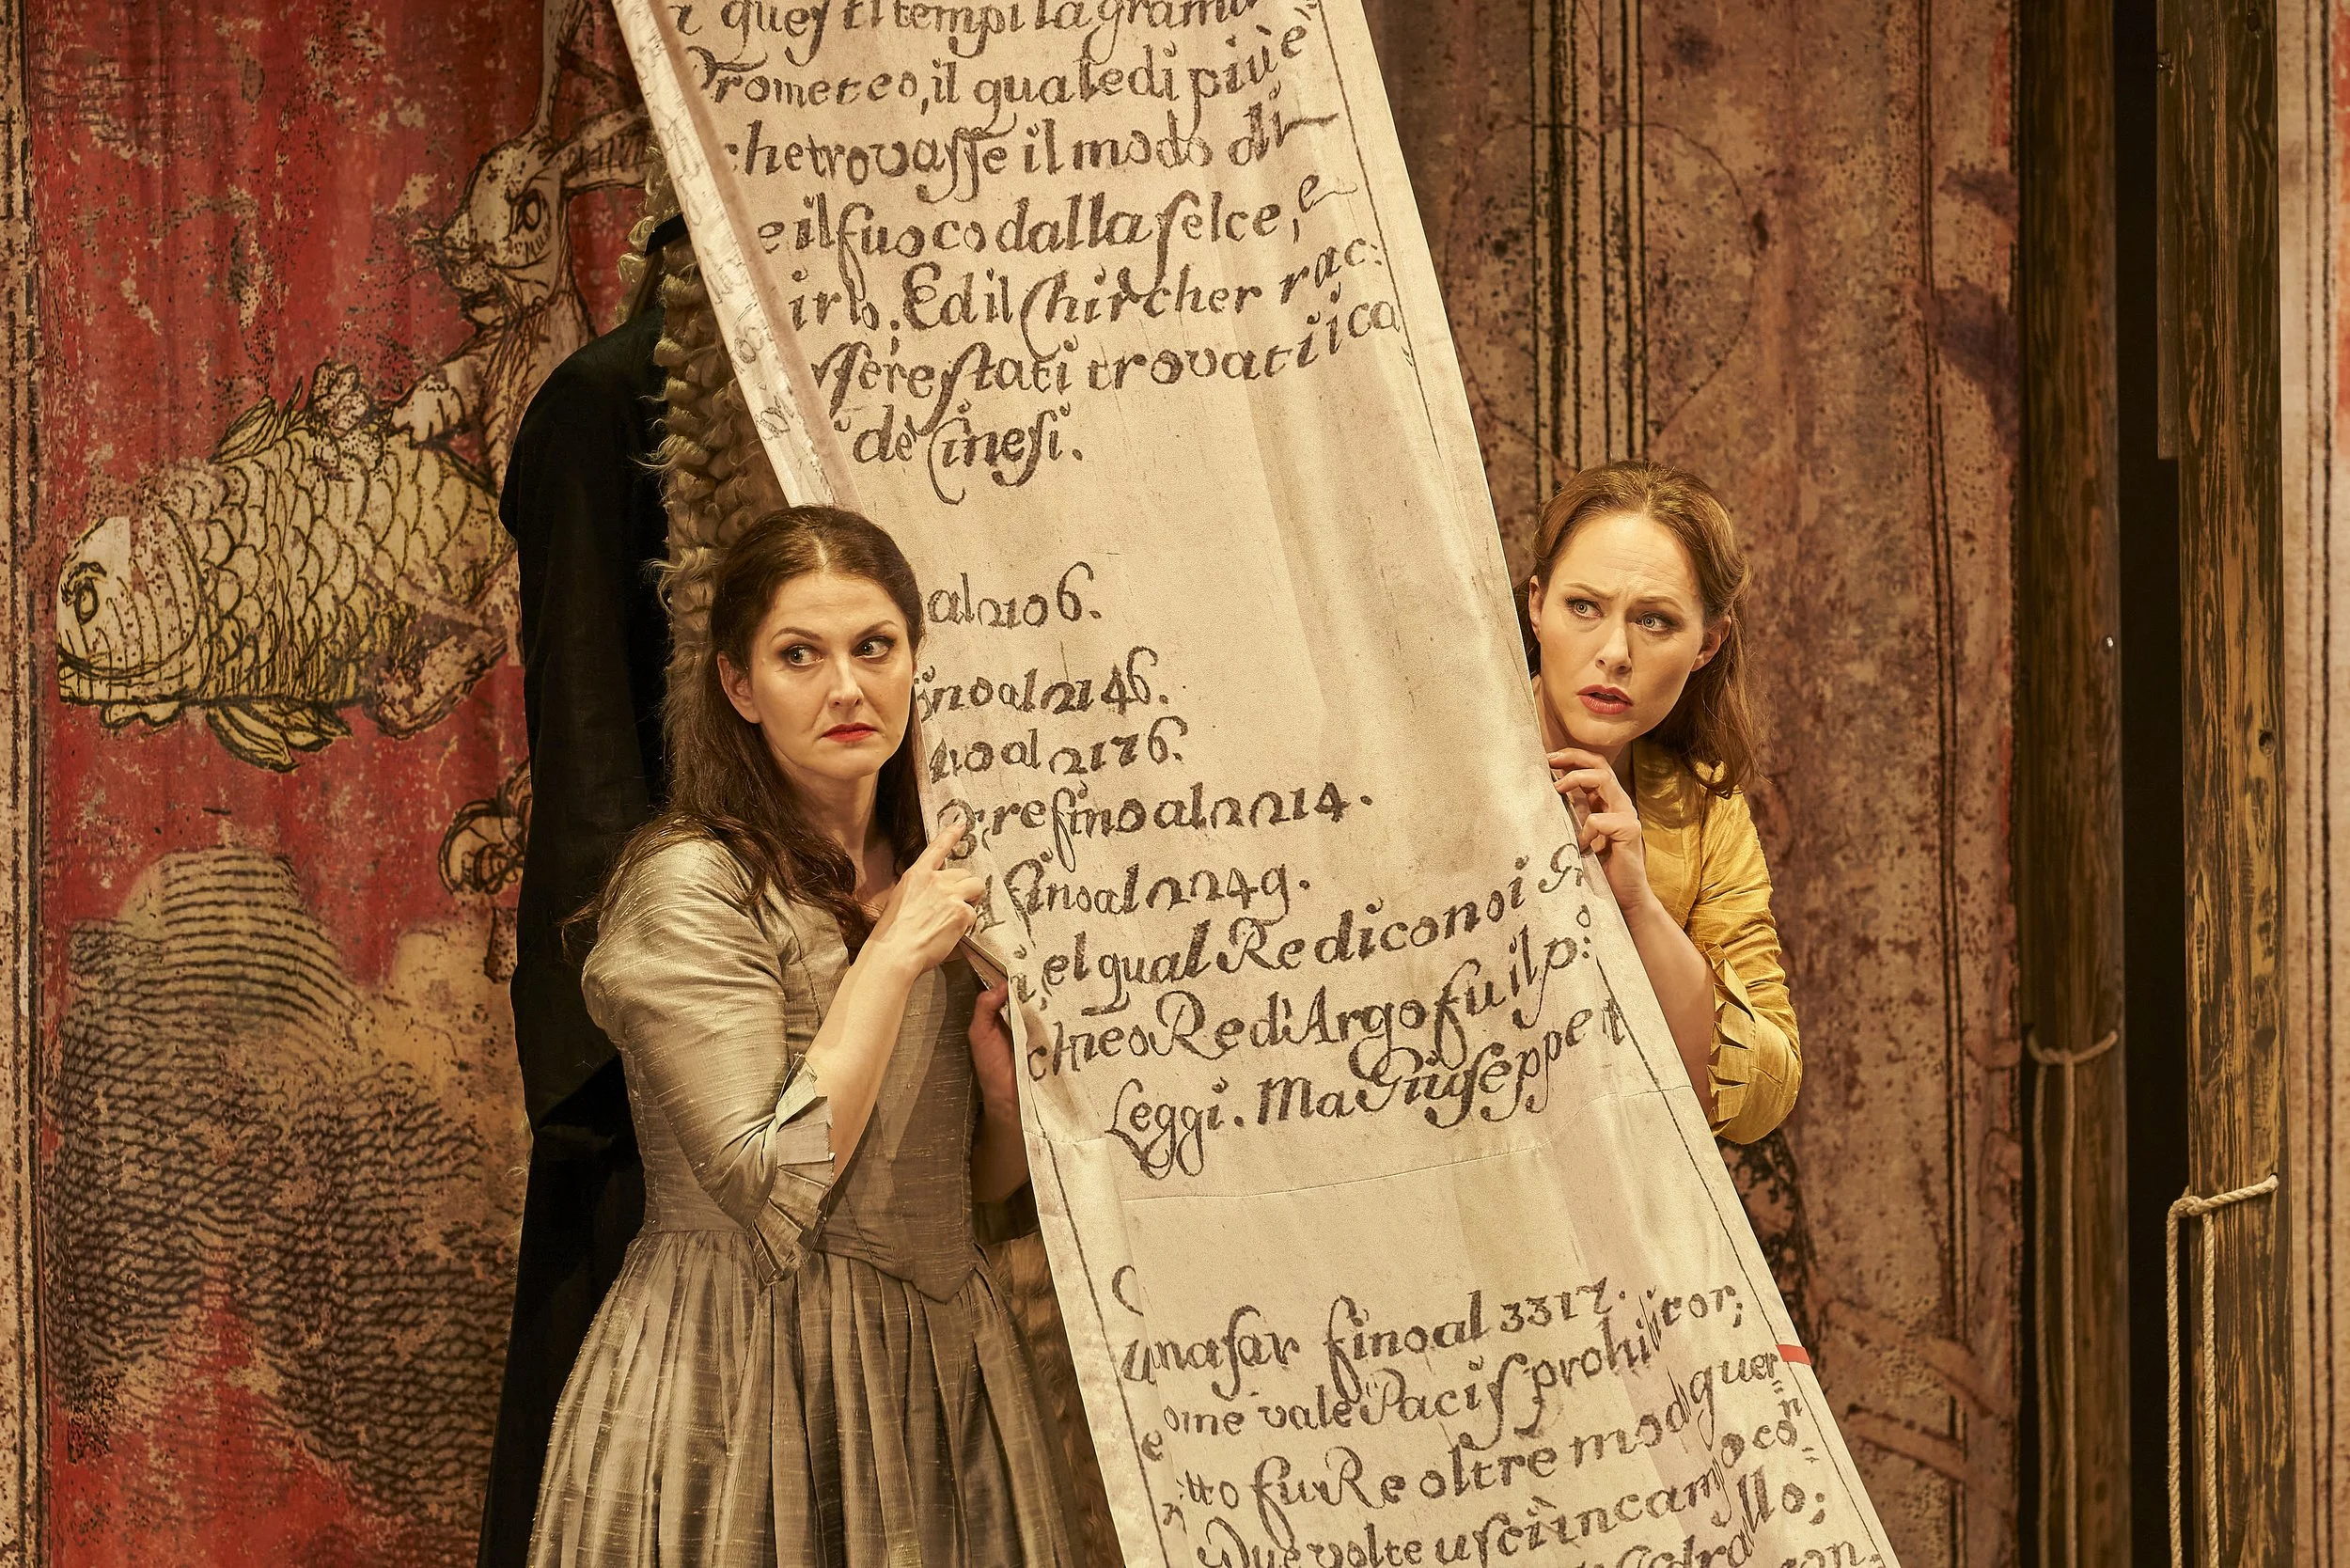 questi tempi la grama
Prometeo, il quale di più è
che trovasse il modo di
e il fuoco dalla selce, e
irlo. Ed il Chircher rac:
essere stati trovati i ca
de Cinesi.
al 2106.
fino al 2146.
no al 2176.
re fino al 2214.
fino al 2249.
i, el qual Re dicono i
Re d'Argo fu il p:
Leggi. Ma Giuseppe
nasar fino al 3317.
ome vale Pacis prohibitor;
tto fu Re oltre modo guer=
Due volte uscì in campo con